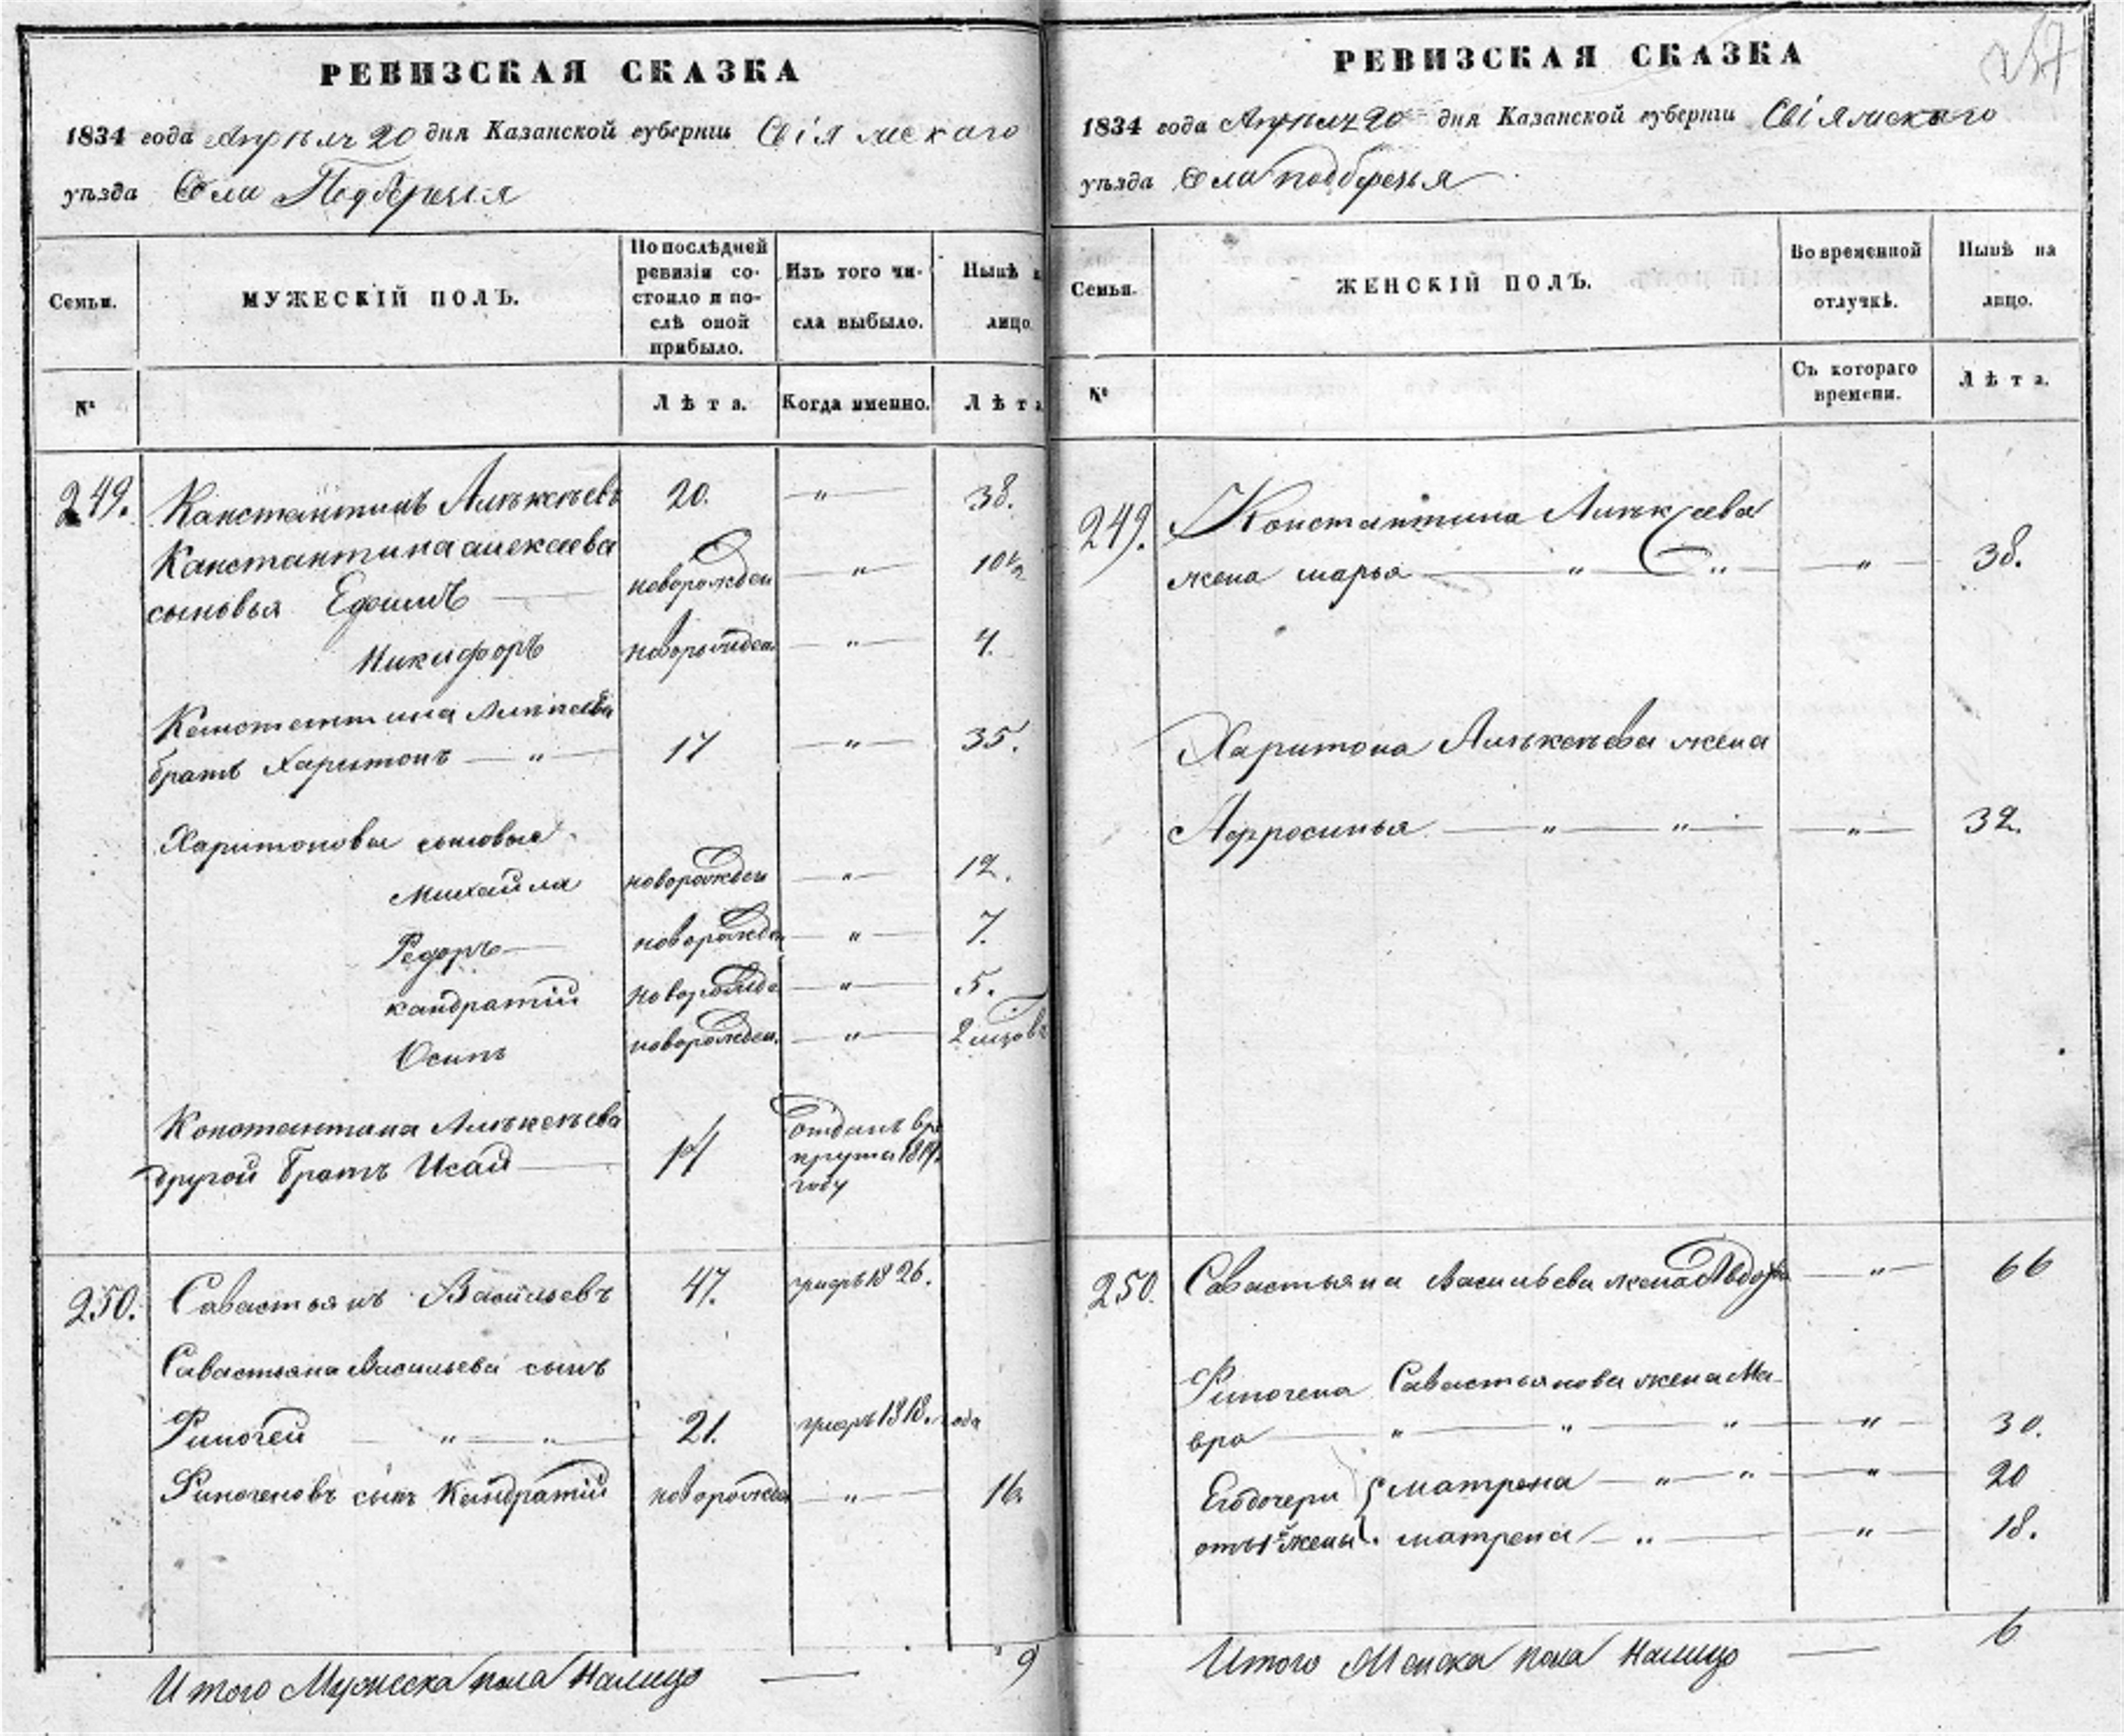 РЕВИЗСКАЯ СКАЗКА
1834 года Апреля 20 дня Казанской губернiи Свiяжскаго
уѣзда Села Подберезья
Семьи.
МУЖЕСКIЙ ПОЛЪ.
По послѣдней
ревизiи со-
стояло и по-
слѣ оной
прибыло.
Изъ того чи-
сла выбыло.
Нынѣ
лицо
№
Лѣта.
Когда именно.
Лѣта
249. Канстантинъ Алѣксѣевъ 20. " 38.
Канстантина алексеева
сыновья Ефимъ новорожден " 10½
Никифоръ новорожден " 4.
Канстентина
братъ Харитонъ " 17 " 35.
Харитоновы сыновья
Михайла новорожден " 12.
Федоръ новорожде " 7.
кандратiй новорожде " 5.
Осипъ новорожден. "
Констентина Алѣксѣева
другой братъ Исай 14
отданъ въ ре
круты 1814
году
250. Савастьянъ Васильевъ 47. 1826.
Савастьяна Васильева сынъ
Финогей " " 21. 1818. года
Финогеновъ сынъ Кандратiй новорожден " 16.
Итого Мужеска пола Налицо 9
РЕВИЗСКАЯ СКАЗКА
1834 года Апреля 20 дня Казанской губернiи Свiяжскаго
уѣзда Села подберезья
Семьи.
ЖЕНСКIЙ ПОЛЪ.
Во временной
отлучкѣ.
Нынѣ на
лицо.
№
Съ котораго
времени.
Лѣта.
249. Константина Алѣксѣева
жена марья " " " 38.
Харитона Алѣксѣева жена
Афросинья " " " 32.
250. Савастьяна Васильева жена Авдотья " 66
Финогена Савастьянова жена Ма-
вра " " " " 30.
Его дочери { матрена " " " 20
отъ 1й жены матрена " " 18.
Итого Женска пола Налицо 6